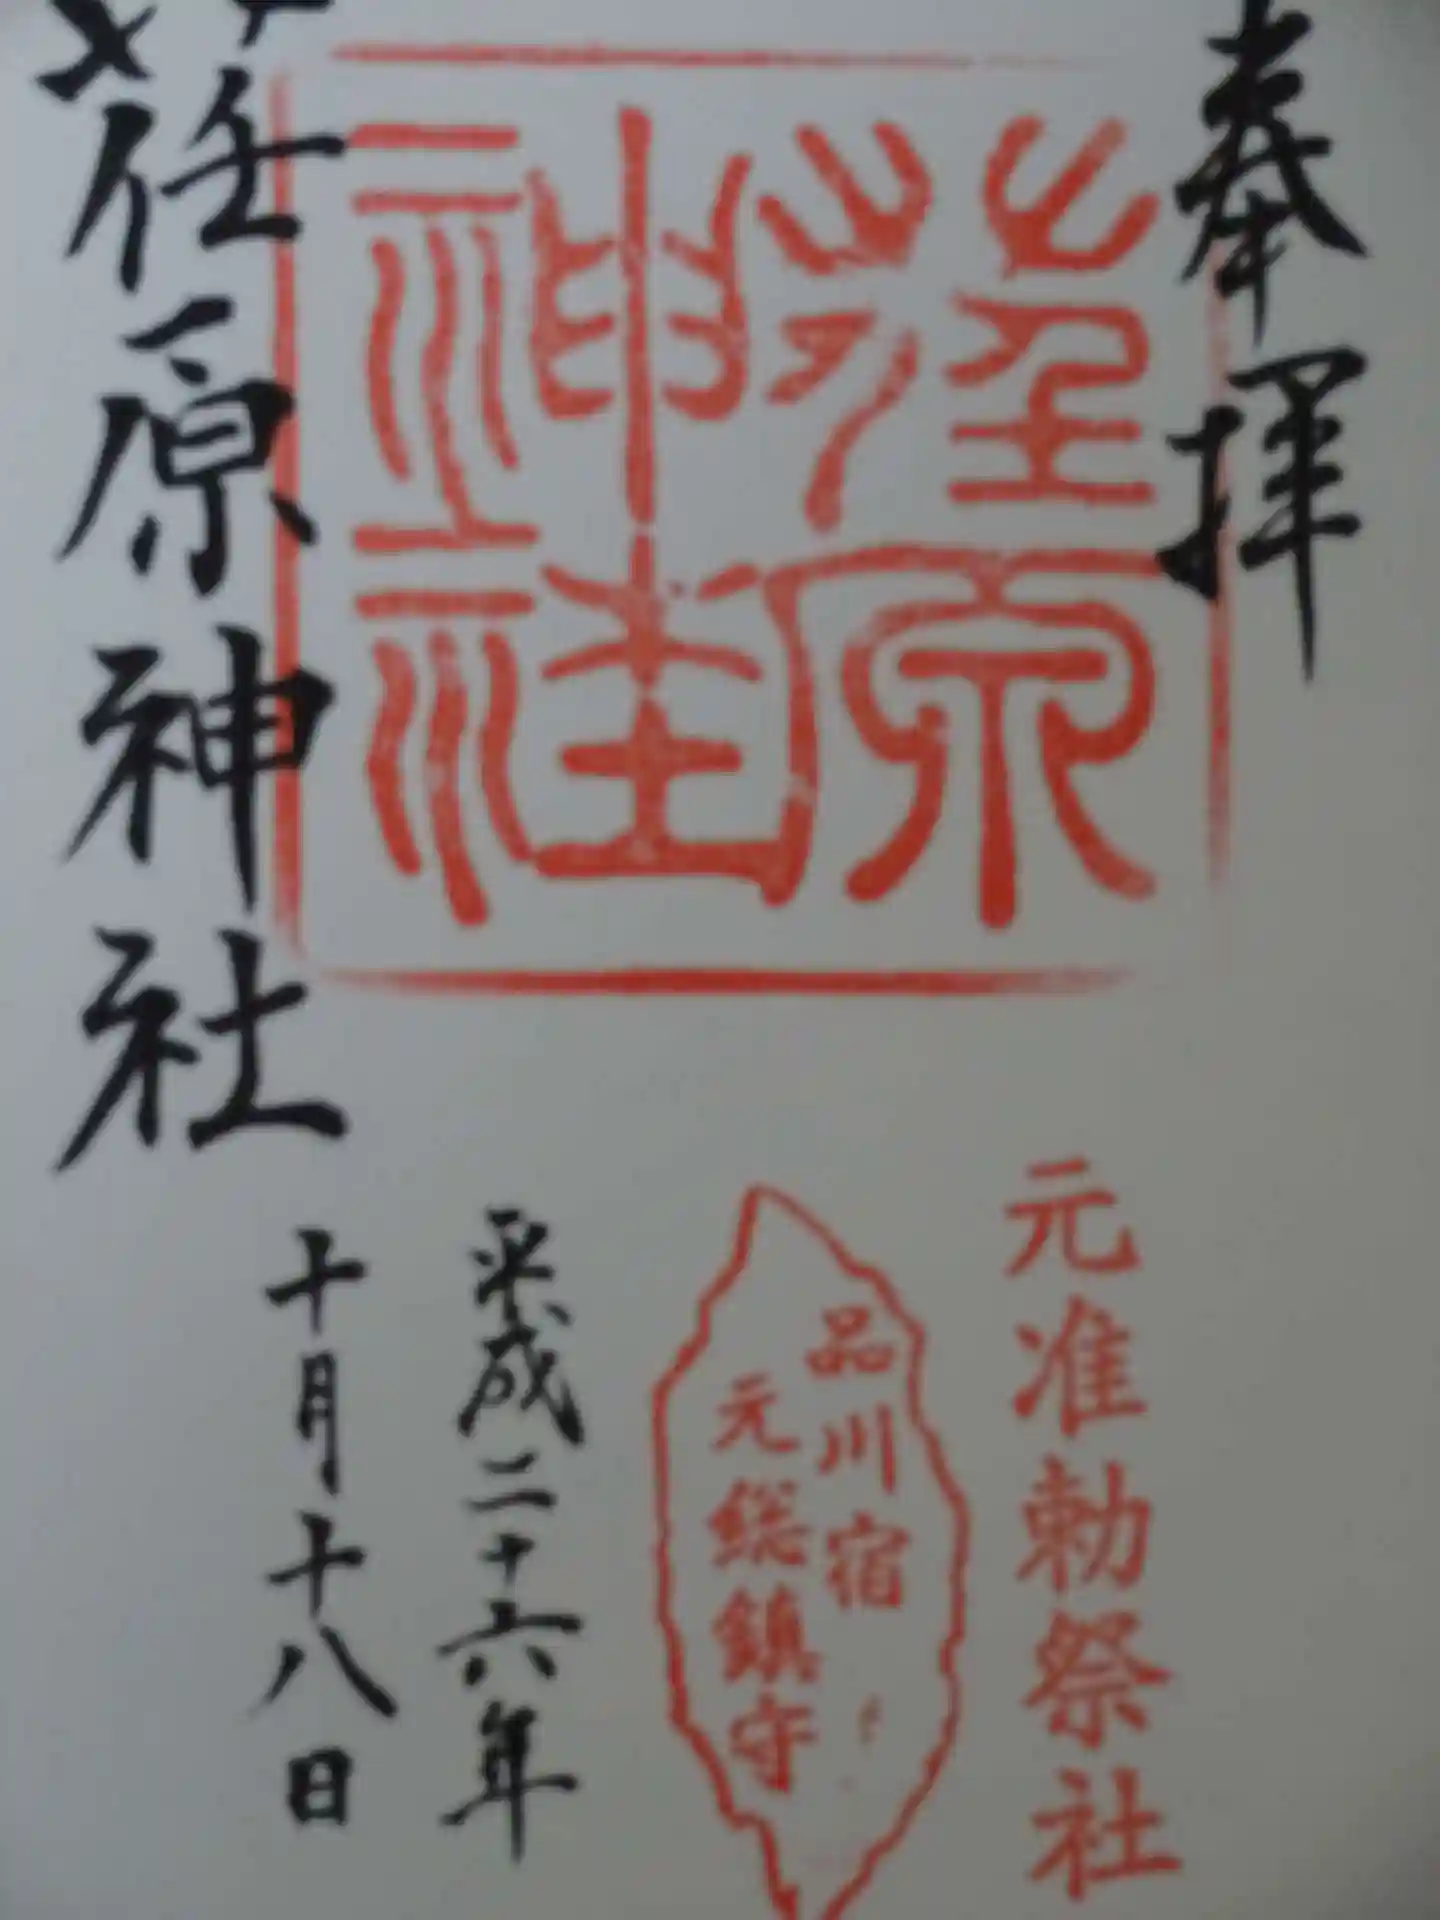 奉拝
荏原
神社
元准勅祭社
品川宿
元総鎮守
平成二十六年
十月十八日
荏原神社